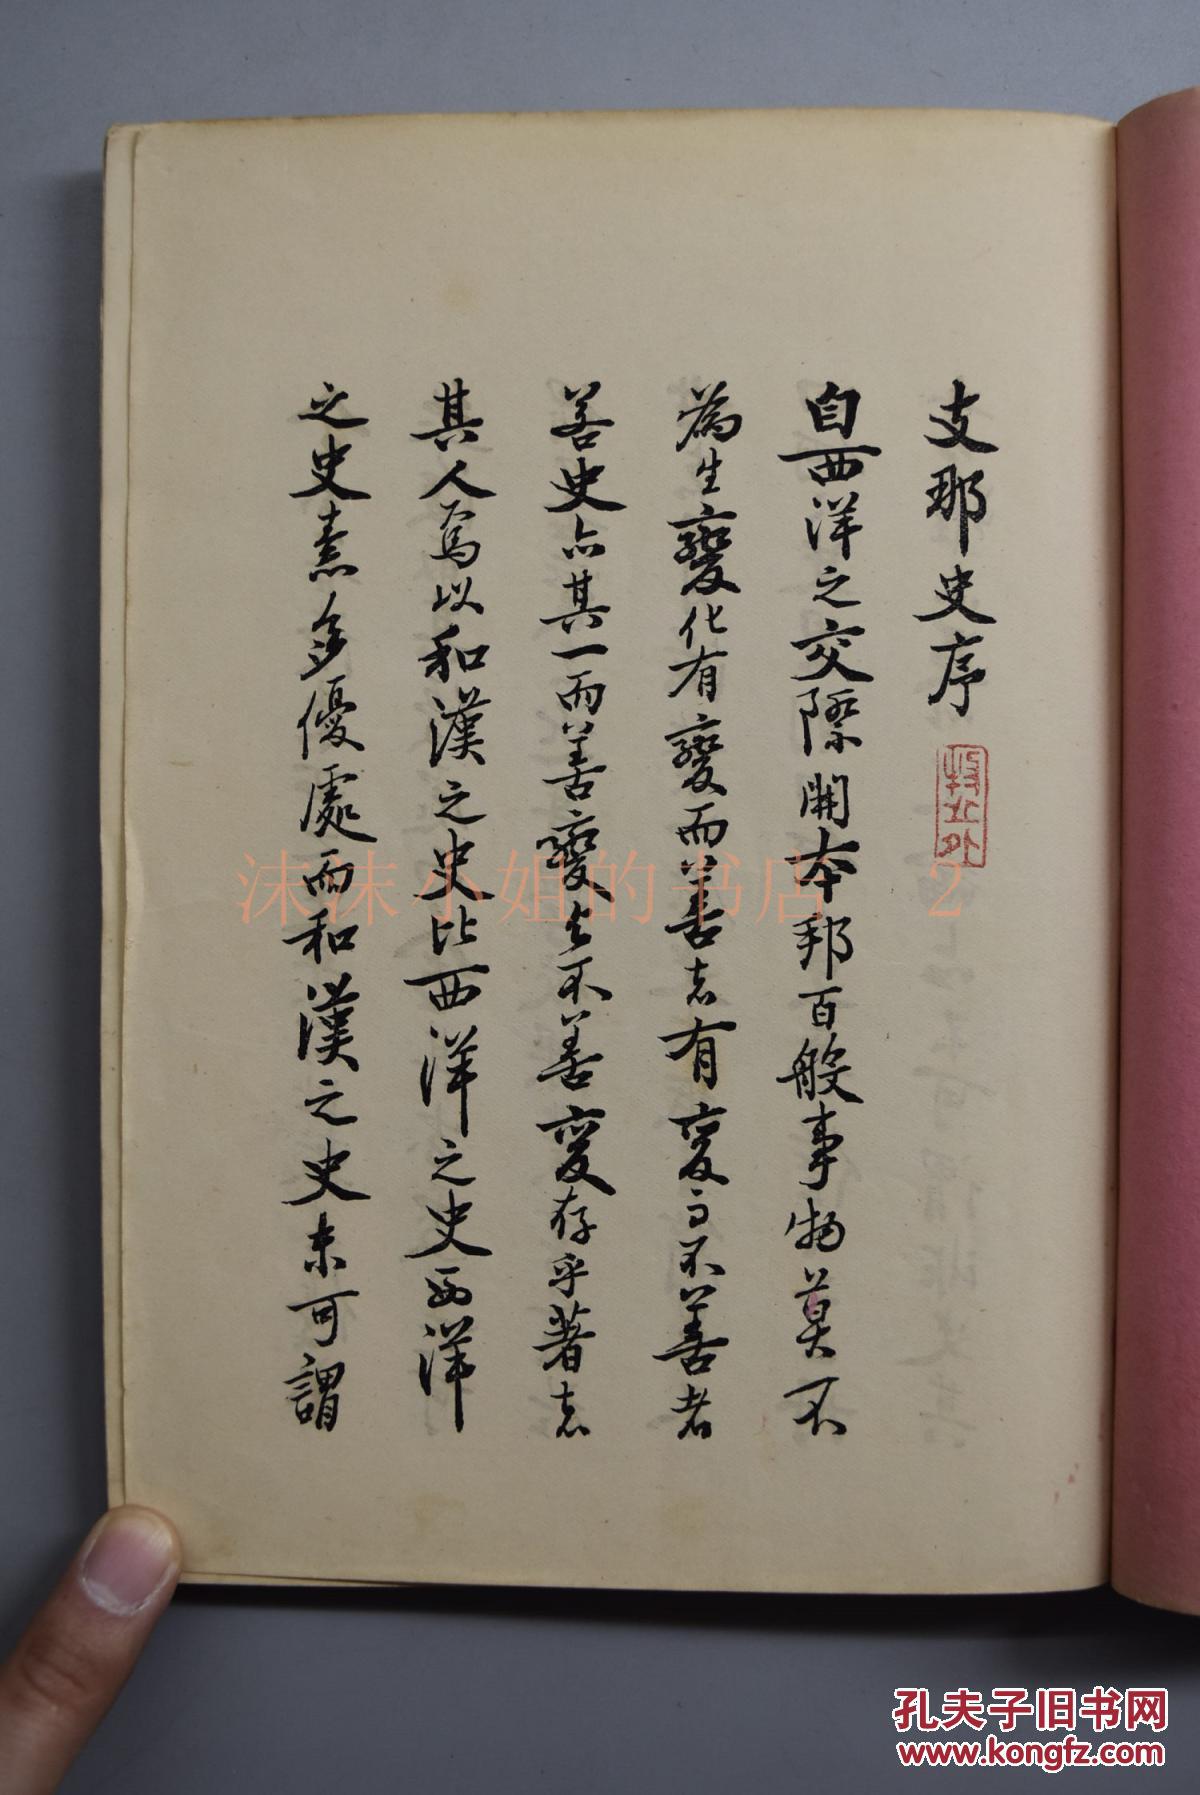 支那史序
自西洋之交際開本邦百般事物莫不
為生變化有變而善者有變而不善者
若史亦其一而善變與不善變存乎著者
其人焉以和漢之史比西洋之史西洋
之史素多優處而和漢之史未可謂
沫沫小姐的书店 2
孔夫子旧书网
www.kongfz.com